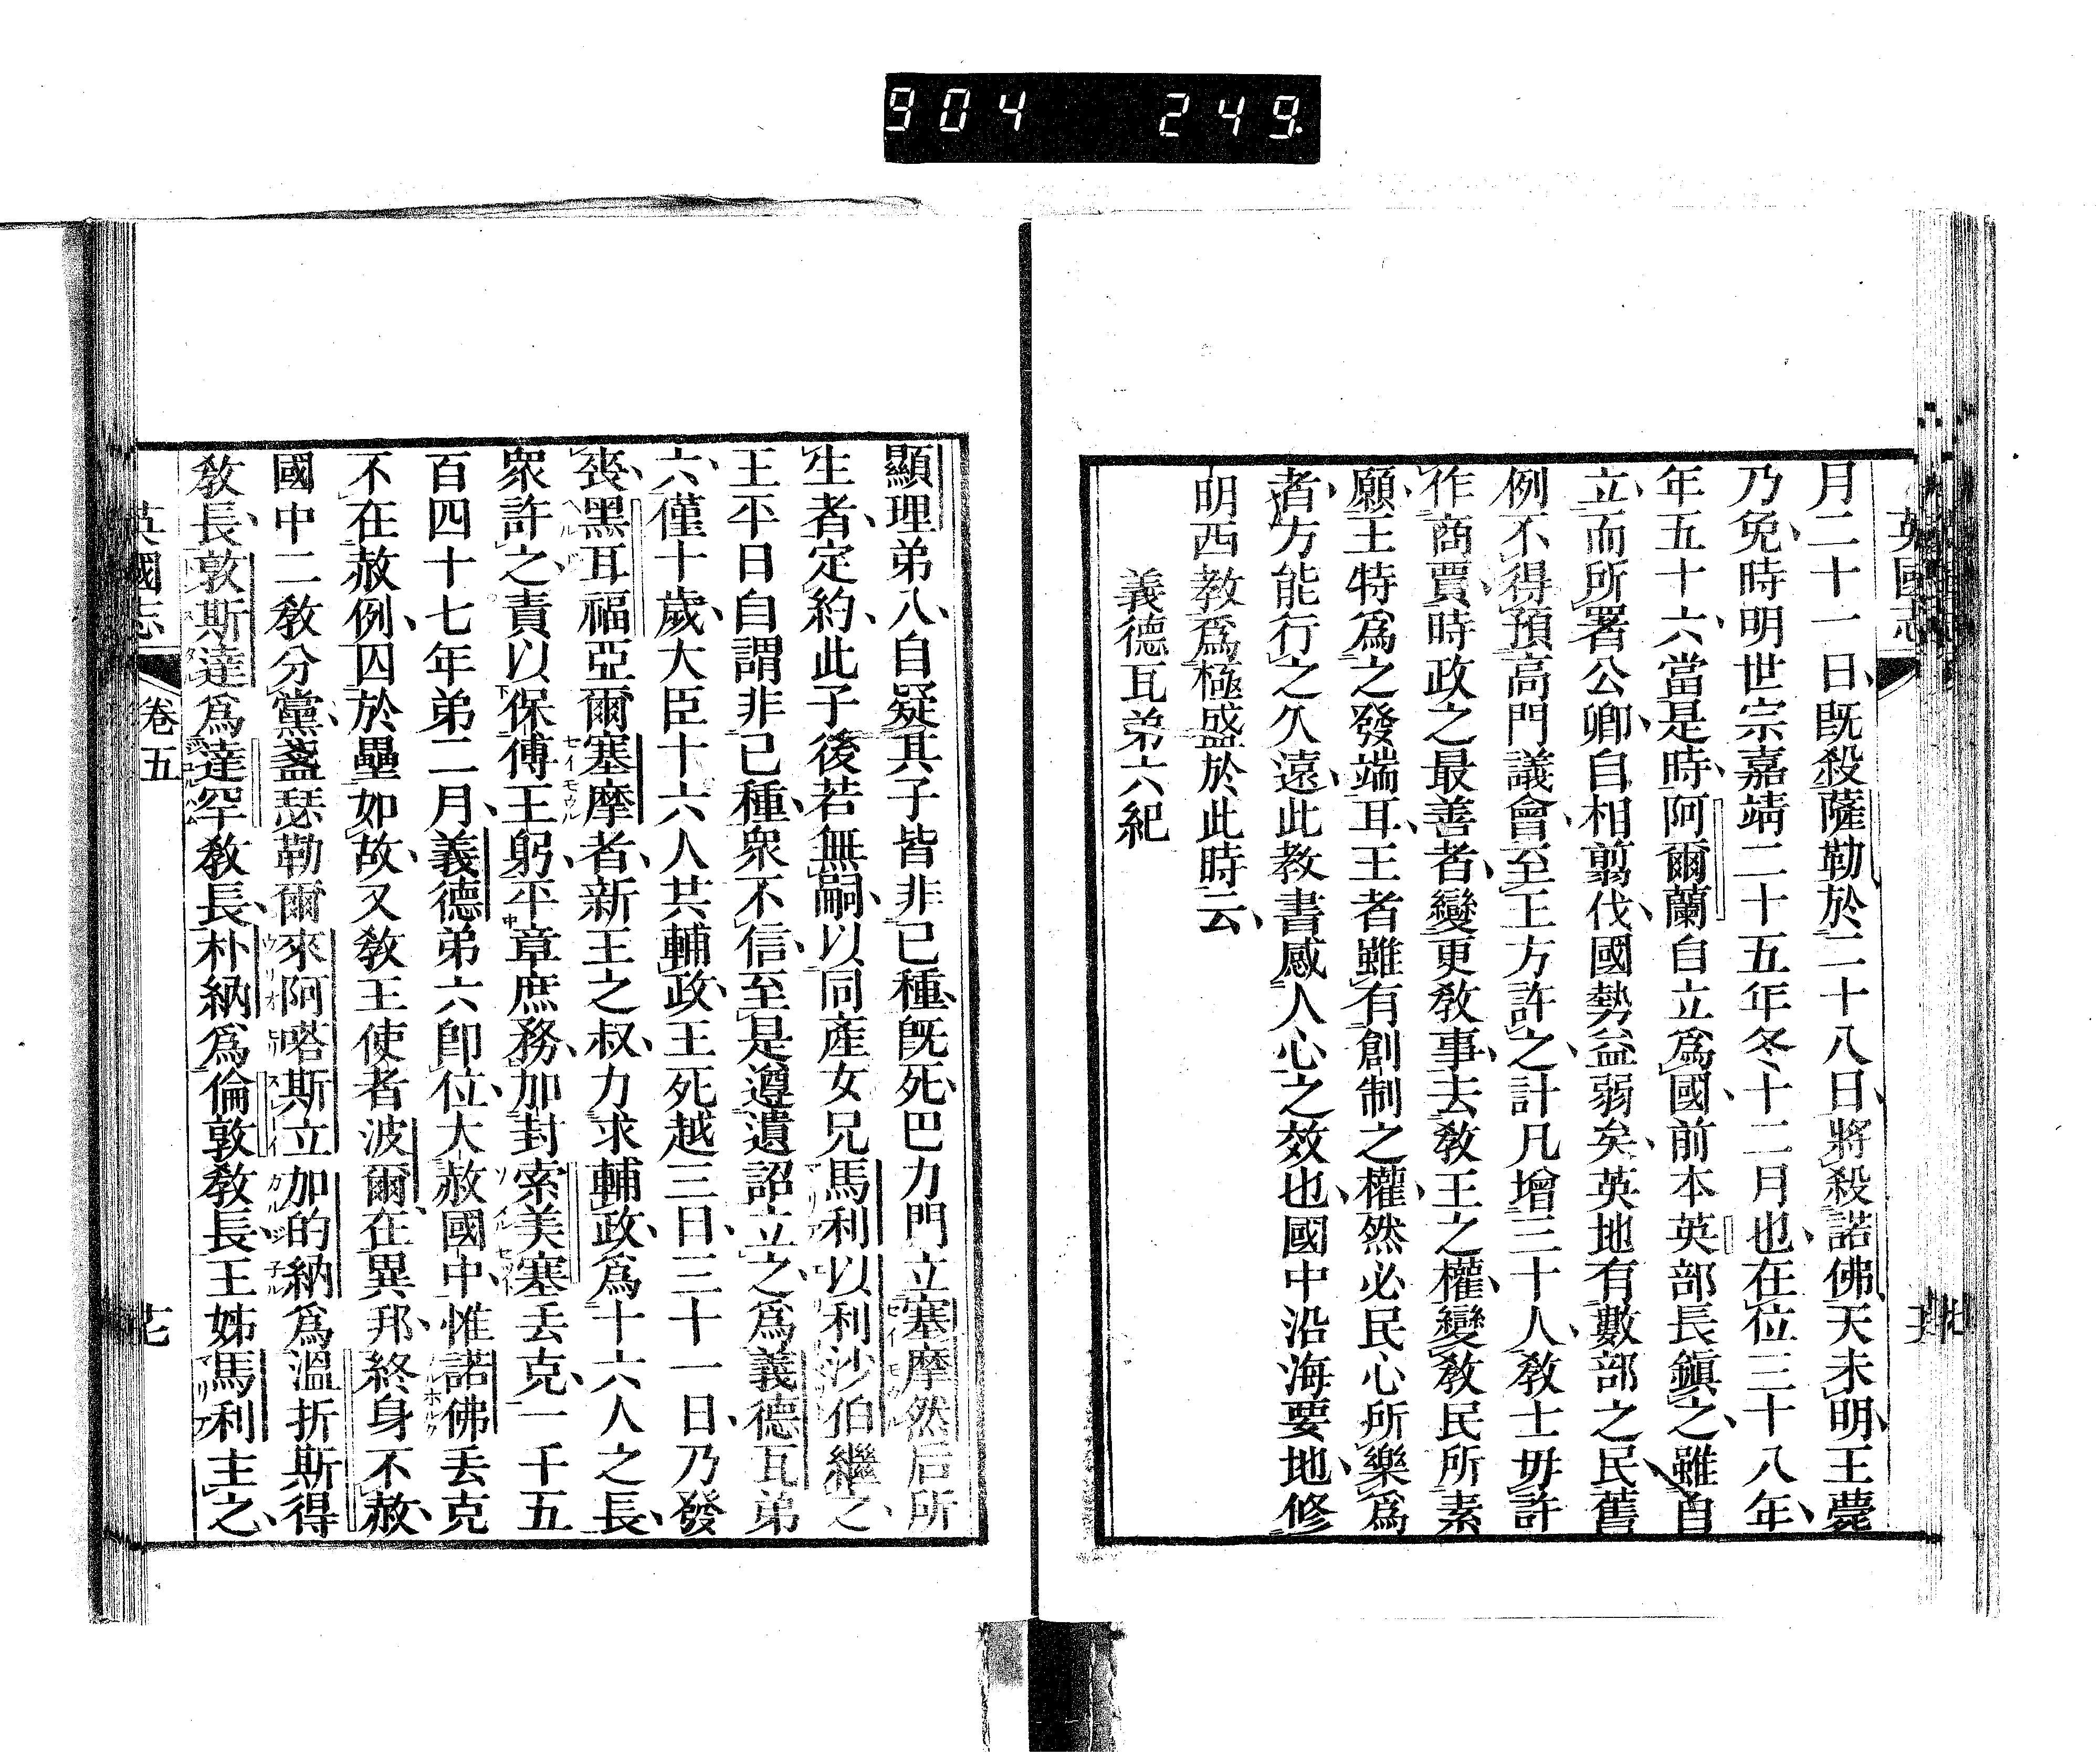 904 249
英國志
月二十一日既殺薩勒於二十八日將殺諾佛天未明王薨
乃免時明世宗嘉靖二十五年冬十二月也在位三十八年
年五十六當是時阿爾蘭自立爲國前本英部長鎭之雖自
立而所署公卿自相翦伐國勢益弱矣英地有數部之民舊
例不得預高門議會至王方許之計凡增三十人敎士毋許
作商賈時政之最善者變更敎事去敎王之權變敎民所素
願王特爲之發端耳王者雖有創制之權然必民心所樂爲
者方能行之久遠此教書感人心之效也國中沿海要地修
明西教爲極盛於此時云
義德瓦弟六紀
顯理弟八自疑其子皆非己種旣死巴力門立塞摩然后所
生者定約此子後若無嗣以同產女兄馬利以利沙伯繼之
王平日自謂非己種衆不信至是遵遺詔立之爲義德瓦弟
六僅十歲大臣十六人共輔政王死越三日三十一日乃發
喪黑耳福亞爾塞摩者新王之叔力求輔政爲十六人之長
衆許之責以保傅王躬平章庶務加封索美塞丢克一千五
百四十七年弟二月義德弟六卽位大赦國中惟諾佛丢克
不在赦例囚於壘如故又敎王使者波爾在異邦終身不赦
國中二敎分黨盞瑟勒爾來阿喀斯立加的納爲溫折斯得
敎長敦斯達爲達罕敎長朴納爲倫敦敎長王姊馬利主之
英國志 卷五